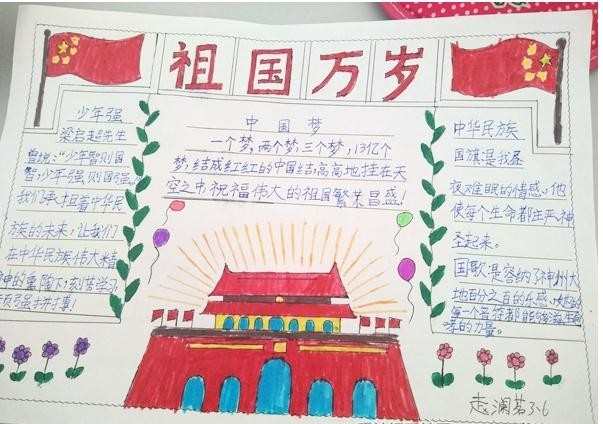 祖国万岁
少年强
梁启超先生
曾说:“少年智则国
智,少年强则国强。”
我们承担着中华民
族的未来,让我们
在中华民族伟大精
神的重陶下,刻苦学习
中国梦
一个梦,两个梦,三个梦,13亿个
梦,结成红红的中国结,高高地挂在天
空之中,祝福伟大的祖国繁荣昌盛!
中华民族
国旗是我
难眠的情感,他
使每个生命都庄两神
圣起来。
国歌是容纳了神州大
地百分之百的乐感,
的力量。
3.6